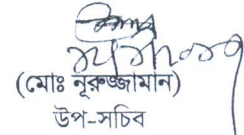 (মোঃ নূরুজ্জামান)
উপ-সচিব